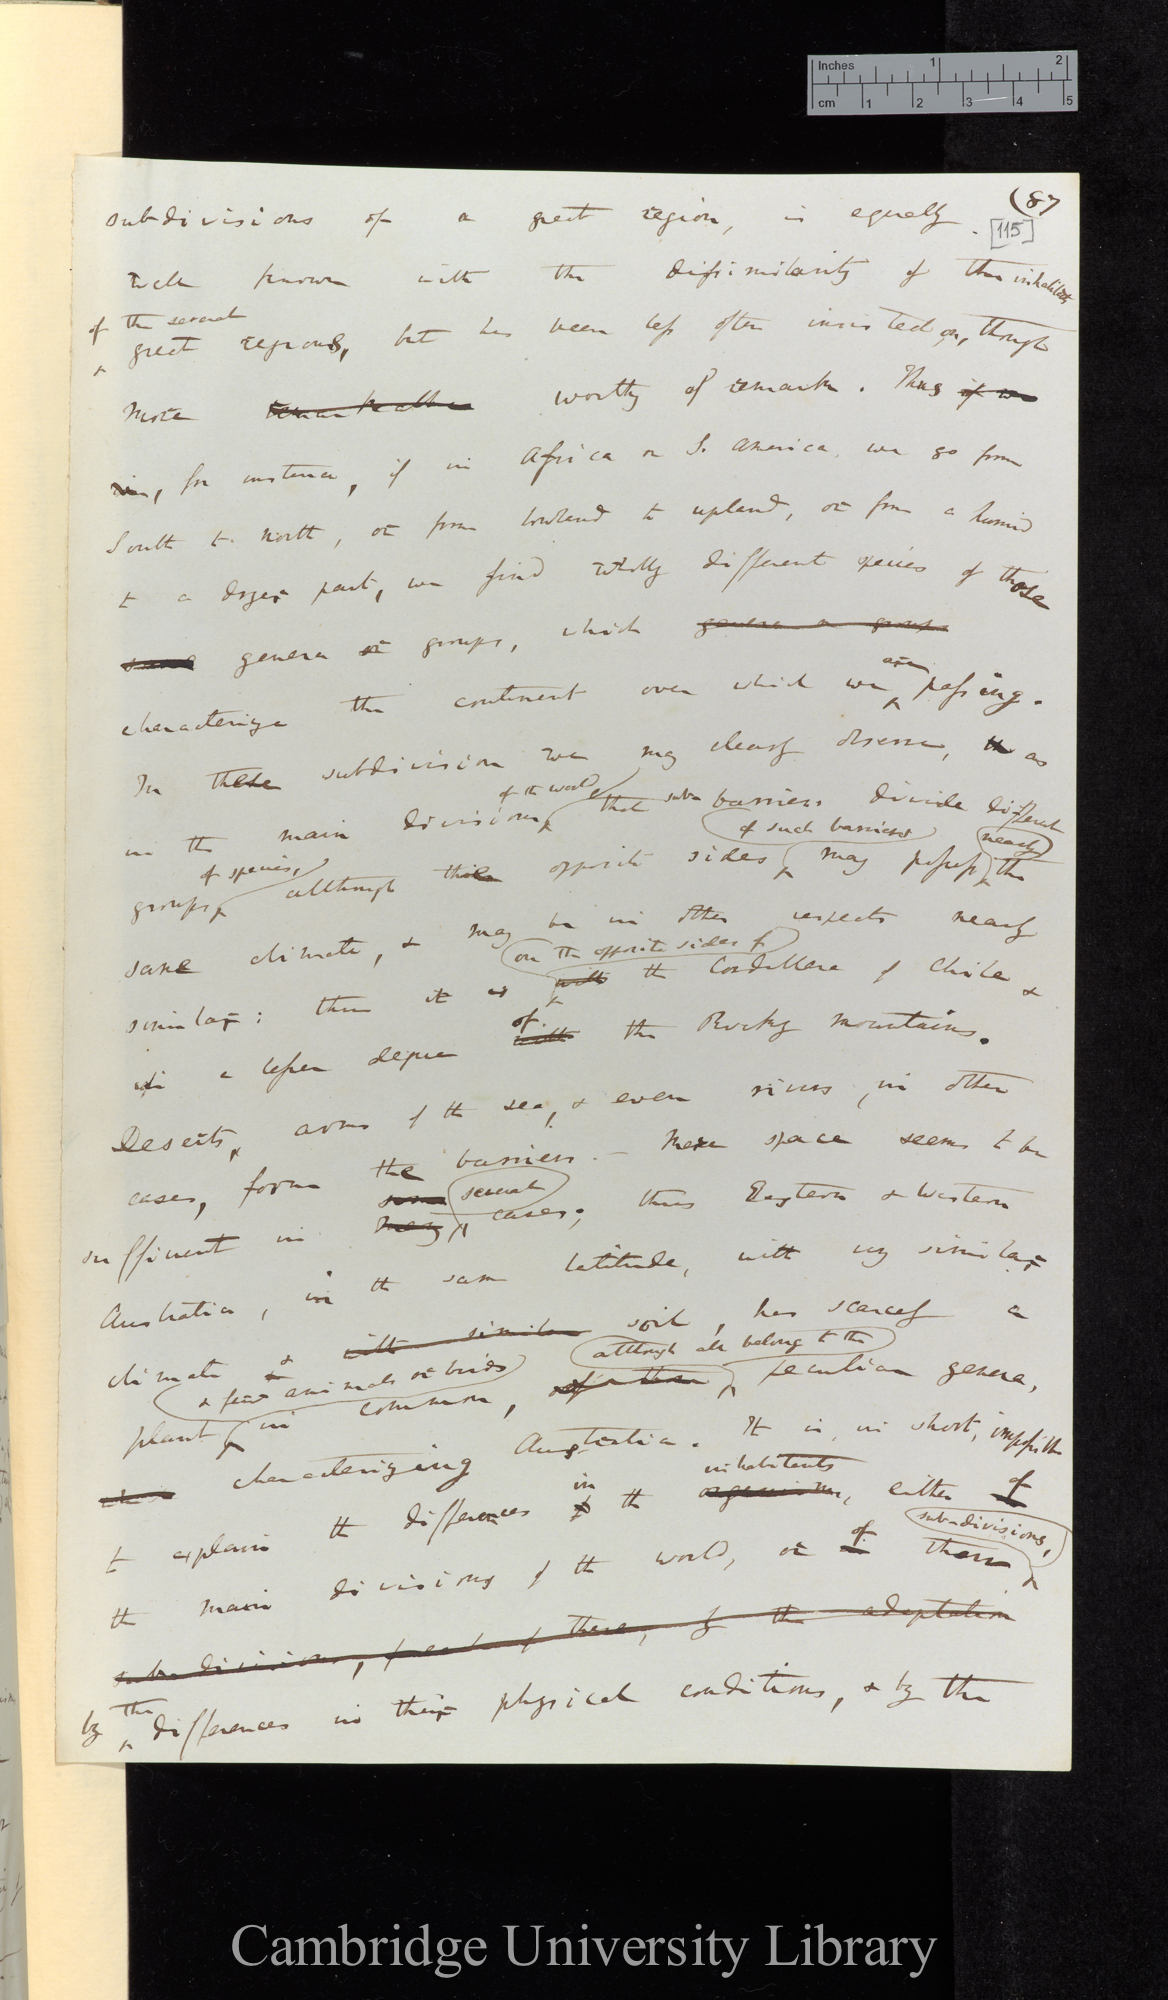 Inches 1 2
cm 1 2 3 4 5
(87
[115]
subdivisions of a great region, is equally
well known with the dissimilarity of the inhabitants
of the several
great regions, but has been less often insisted on, though
more remarkable worthy of remark. Thus if we
in, for instance, if in Africa or S. America we go from
South to north, or from lowland to upland, or from a humid
to a dryer part, we find wholly different species of those
same genera or groups, which genera or groups
are
characterize the continent over which we passing.
In these subdivision we may clearly observe, as
of the world
in the main divisions that sub-barriers divide different
of species, of such barriers nearly
groups, although the opposite sides may possess the
same climate, & may be in other respects nearly
on the opposite sides of
similar: thus it is with the Cordillera of Chile &
of
in a lesser degree with the Rocky mountains.
Deserts, arms of the sea, & even rivers, in other
cases, form the barriers. — Mere space seems to be
some several
sufficient in many cases; thus Eastern & Western
Australia, in the same latitude, with very similar
climate & with similar soil, has scarcely a
& few animals or birds although all belong to the
plant in common, peculiar genera,
characterizing Australia. It is, in short, impossible
in inhabitants of
to explain the differences of the organisms, either
of subdivisions,
the main divisions of the world, or them
subdivisions, of each of these, by the adaptation
the
by differences in their physical conditions, & by the
Cambridge University Library